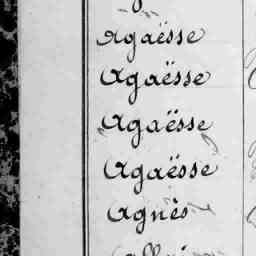 Agaësse
Agaësse
Agaësse
Agaësse
Agnès